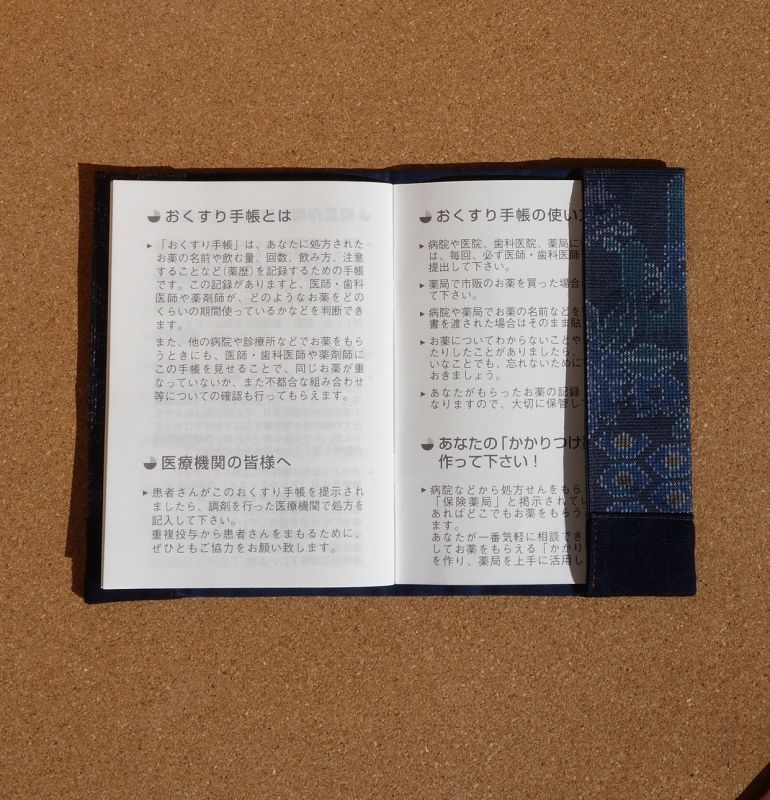 おくすり手帳とは
▶「おくすり手帳」は、あなたに処方された
お薬の名前や飲む量、回数、飲み方、注意
することなど(薬歴)を記録するための手帳
です。この記録がありますと、医師・歯科
医師や薬剤師が、どのようなお薬をどの
くらいの期間使っているかなどを判断でき
ます。
また、他の病院や診療所などでお薬をもら
うときにも、医師・歯科医師や薬剤師に
この手帳を見せることで、同じお薬が重
なっていないか、また不都合な組み合わせ
等についての確認も行ってもらえます。
医療機関の皆様へ
▶患者さんがこのおくすり手帳を提示され
ましたら、調剤を行った医療機関で処方を
記入して下さい。
重複投与から患者さんをまもるために、
ぜひともご協力をお願い致します。
おくすり手帳の使い方
▶病院や医院、歯科医院、薬局に
は、毎回、必ず医師・歯科医師
提出して下さい。
▶薬局で市販のお薬を買った場合
て下さい。
▶病院や薬局でお薬の名前などを
書を渡された場合はそのまま貼
▶お薬についてわからないことや
たりしたことがありましたら、
いなことでも、忘れないために
おきましょう。
▶あなたがもらったお薬の記録
なりますので、大切に保管して
あなたの「かかりつけ
作って下さい！
▶病院などから処方せんをもら
「保険薬局」と掲示されてい
あればどこでもお薬をもらう
ます。
あなたが一番気軽に相談でき
してお薬をもらえる「かかり
を作り、薬局を上手に活用し